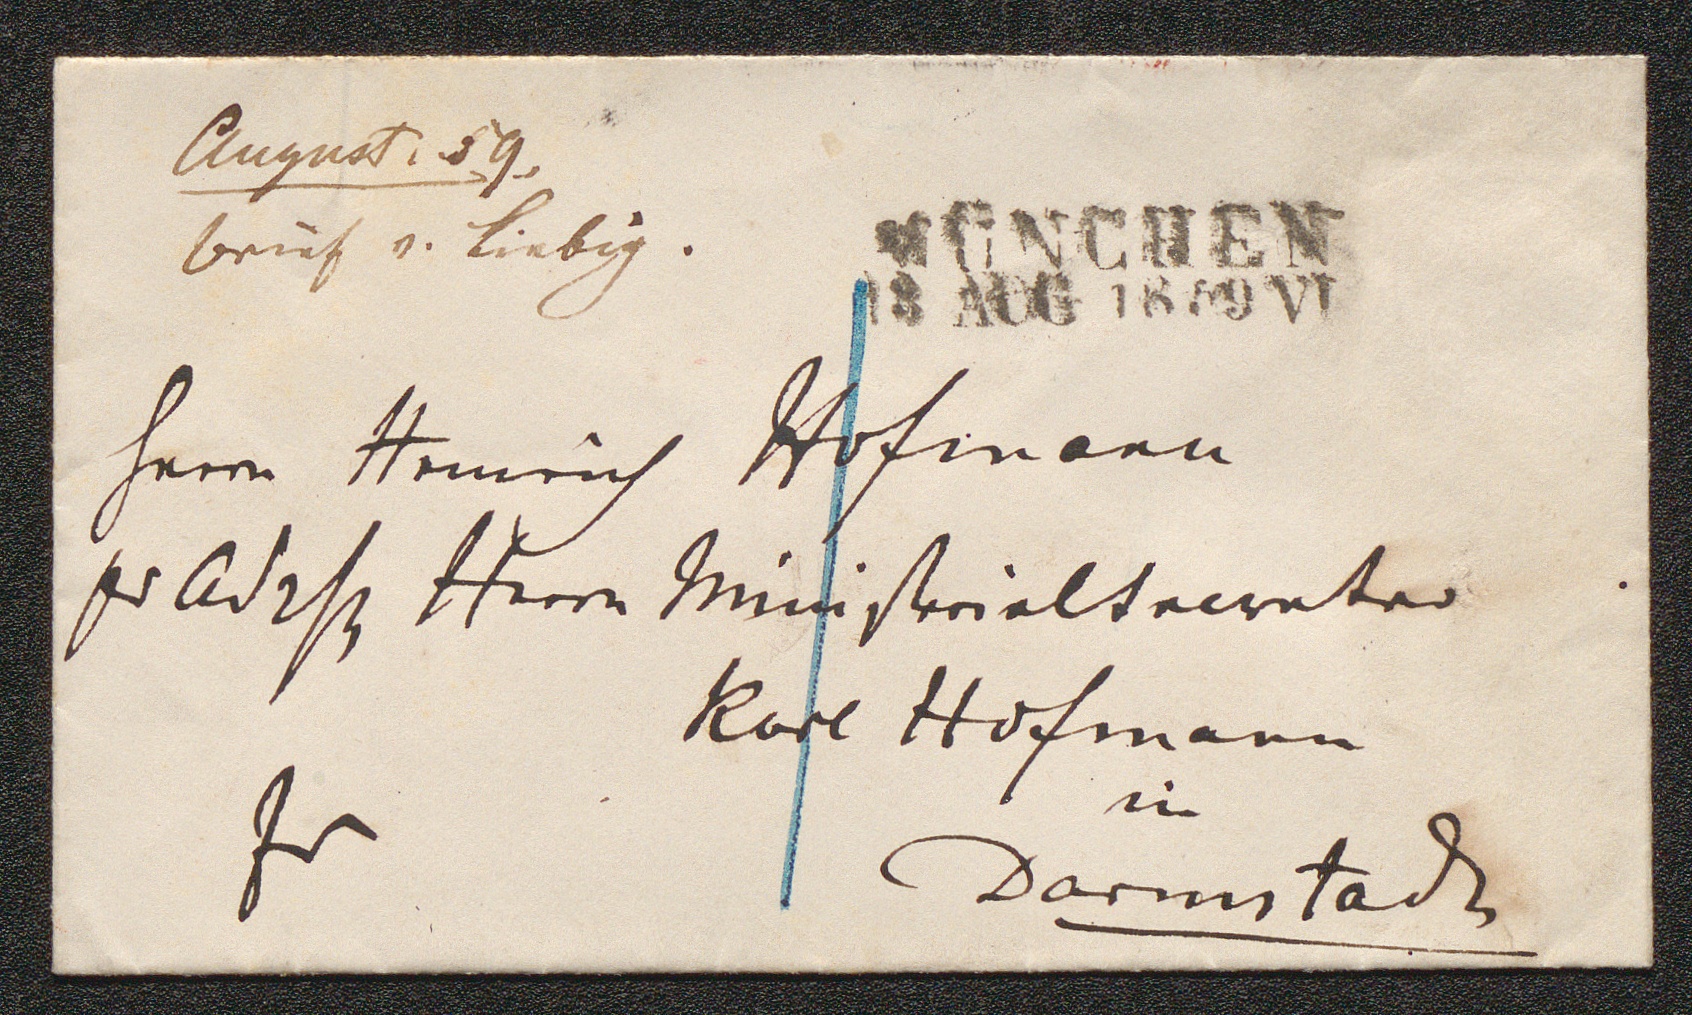 August. 59.
Brief v. Liebig.
MÜNCHEN
13 AUG 1859 VI
Herrn Heinrich Hofmann
pr Adresse Herrn Ministerialsecretär
Karl Hofmann
in
fr
Darmstadt